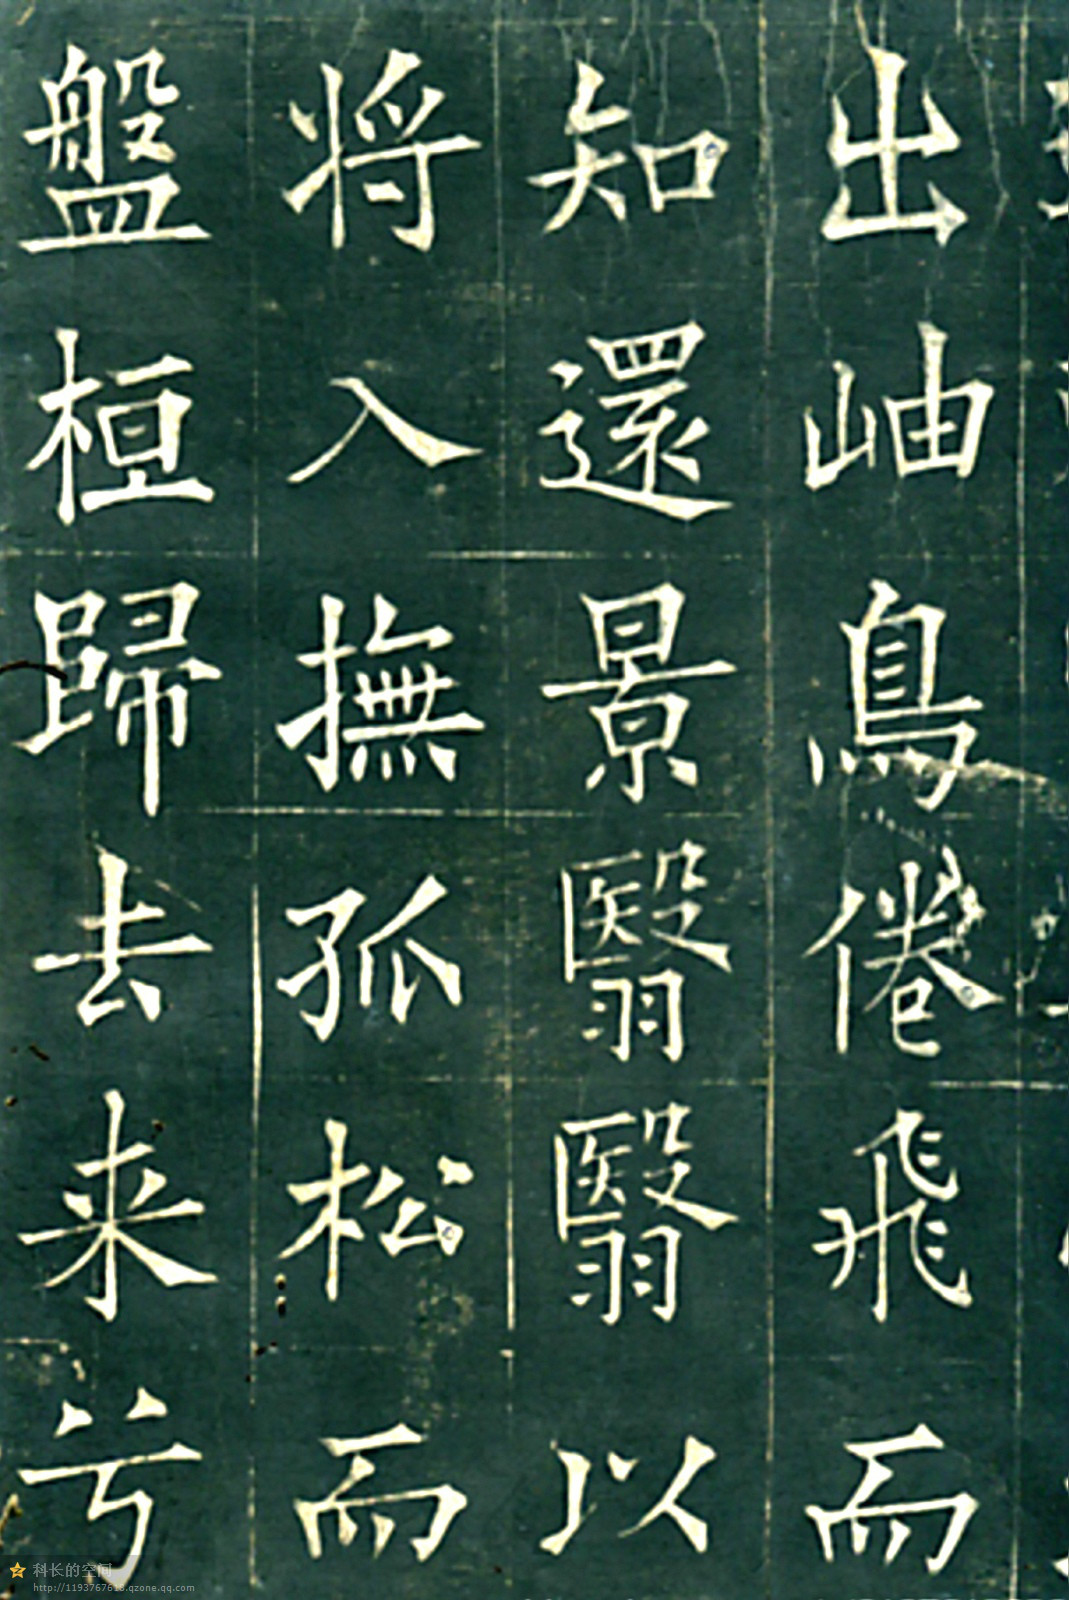 出岫鳥倦飛而
知還景翳翳以
将入撫孤松而
盤桓歸去来兮
科长的空间
http://1193767618.qzone.qq.com